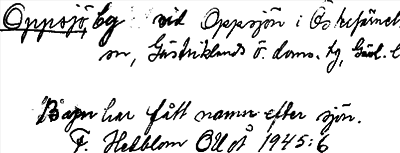 Oppsjö, by vid Oppsjön i Österfärnebo
sn, Gästriklands ö. doms. tg, Gävl. l
Byn har fått namn efter sjön.
F. Hedblom OUÅ 1945:6